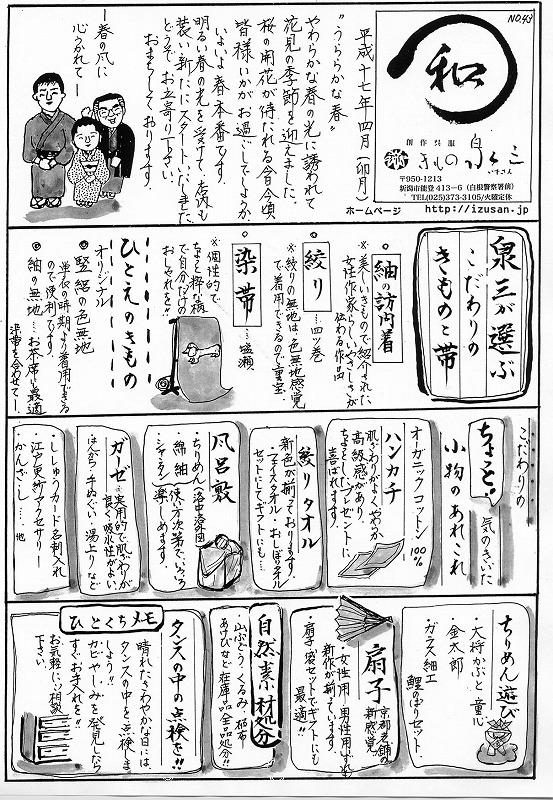 NO.43
和
創作呉服
きもの泉三
いずさん
〒950-1213
新潟市能登413-6（白根警察署前）
TEL(025)373-3105/火曜定休
ホームページ http://izusan.jp
平成十七年四月（卯月）
"うららかな春"
やわらかな春の光に誘われて
花見の季節を迎えました。
桜の開花が待たれる今日今頃
皆様いかがお過ごしでしょうか
いよいよ春本番です。
明るい春の光を受けて、店内も
装い新たにスタートいたしました
どうぞ、お立寄り下さい。
おまちしております。
―春の風に
心ひかれて―
泉三が選ぶ
こだわりの
きものと帯
紬の訪問着
※美しいきもので紹介された
女性作家らしいやさしさが
伝わる作品
絞り…四ツ巻
※絞りの無地は、色無地感覚
で着用できるので重宝
染帯…塩瀬
※個性的で
ちょっと粋な柄
で自分だけの
おしゃれを!!
ひとえのきもの
オリジナル
竪絽の色無地
単衣の時期より着用できる
ので便利ですよ。
紬の無地…お茶席に最適
染帯を合わせて…
こだわりの
ちょっと!
気のきいた
小物のあれこれ
オーガニックコットン100%
ハンカチ
肌ざわりがよく、やわらか
高級感があり、
ちょっとしたプレゼントに
喜ばれます。
絞りタオル
新色が揃っております。
フェイスタオル・おしぼりタオル
セットにしてギフトにも…
風呂敷
・ちりめん（洛中洛外図）
・綿紬
・シャンタン
使い方次第でいろいろ
楽しめます。
ガーゼ…実用的で肌ざわりが
良く、吸水性がよい。
はんかち・手ぬぐい・湯上りなど
・ししゅうカード名刺入れ
・江戸更紗アクセサリー
かんざし……他
ちりめん遊び
・大将かぶと 童心
・金太郎 鯉のぼりセット
・ガラス細工
扇子
京都老舗の
新感覚
・女性用・男性用いずれも
新作が揃っています。
扇子袋セットでギフトにも
最適!!
自然素材処分
・山ぶどう、くるみ
あけびなど在庫品全品処分!!
ひとくちメモ
タンスの中の点検を!!
晴れたさわやかな日には
タンスの中を点検しま
しょう!!
カビやしみを発見したら
すぐお手入れを!!
お気軽にご相談
下さい。